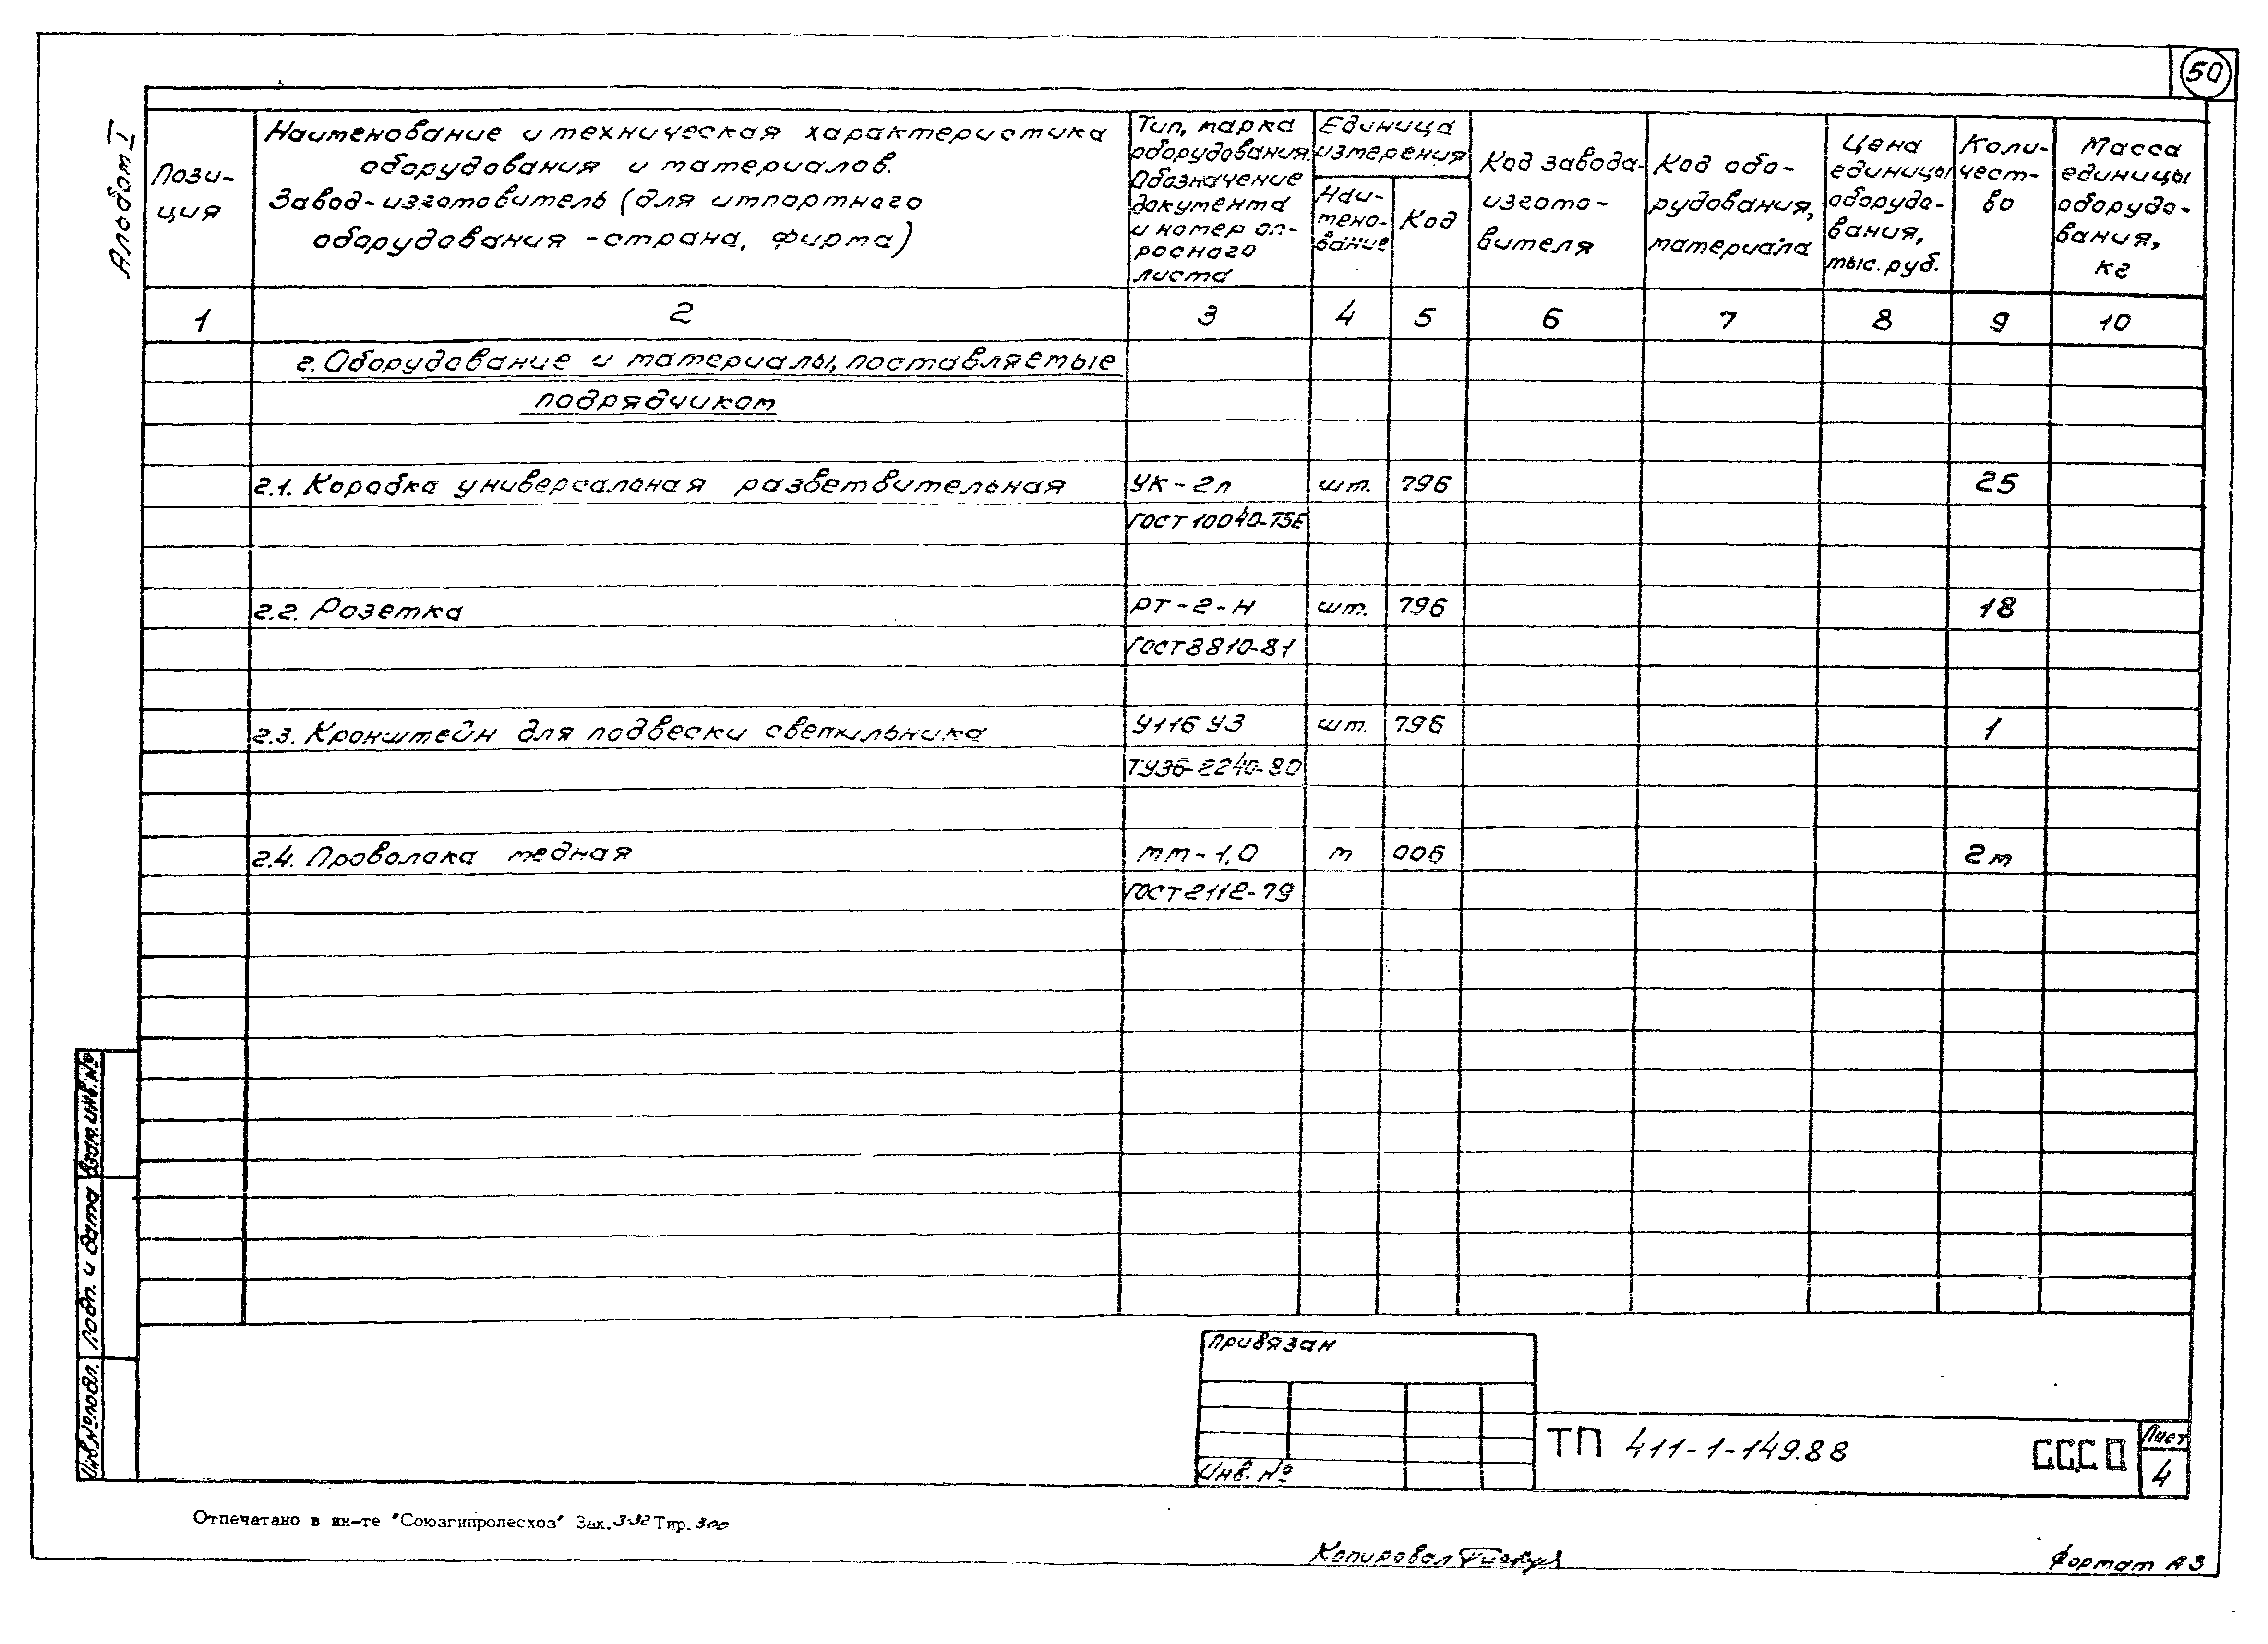 50
Альбом I
Пози-
ция
Наименование и техническая характеристика
оборудования и материалов.
Завод-изготовитель (для импортного
оборудования - страна, фирма)
Тип, марка
оборудования.
Обозначение
документа
и номер оп-
росного
листа
Единица
измерения
Наи-
мено-
вание
Код
Код завода-
изгото-
вителя
Код обо-
рудования,
материала
Цена
единицы
оборудо-
вания,
тыс. руб.
Коли-
чест-
во
Масса
единицы
оборудо-
вания,
кг
1 2 3 4 5 6 7 8 9 10
2. Оборудование и материалы, поставляемые
подрядчиком
2.1. Коробка универсальная разветвительная УК-2п шт. 796 25
ГОСТ 10040-75Е
2.2. Розетка РТ-2-Н шт. 796 18
ГОСТ 8810-81
2.3. Кронштейн для подвески светильника У116 У3 шт. 796 1
ТУ36-2240-80
2.4. Проволока медная мм-1,0 м 006 2м
ГОСТ 2112-79
Взам. инв. №
Подп. и дата
Инв. № подл.
Привязан
Инв. №
ТП 411-1-149.88
СС.СО
Лист
4
Отпечатано в ин-те "Союзгипролесхоз" Зак. 332 Тир. 300
Копировал
Формат А3